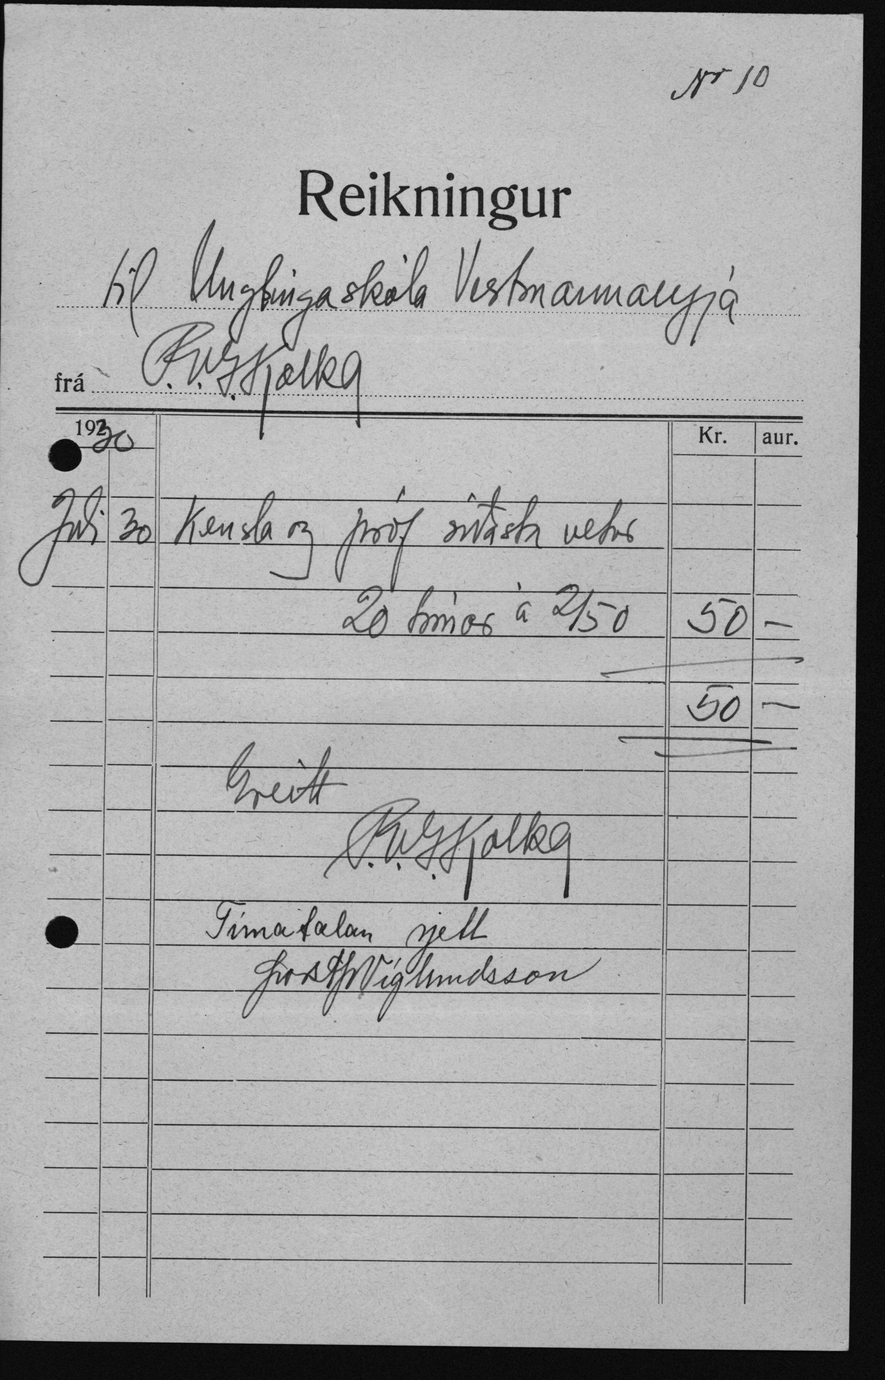 Nr 10
Reikningur
til Unglingaskóla Vestmannaeyja
frá P.V.G. Kolka
1930 Kr. aur.
Júlí 30 Kensla og próf síðastl. vetur
20 tímar à 2/50 50 —
50 —
Greitt
P.V.G. Kolka
Tímatalan rjett
Þorst Þ Víglundsson